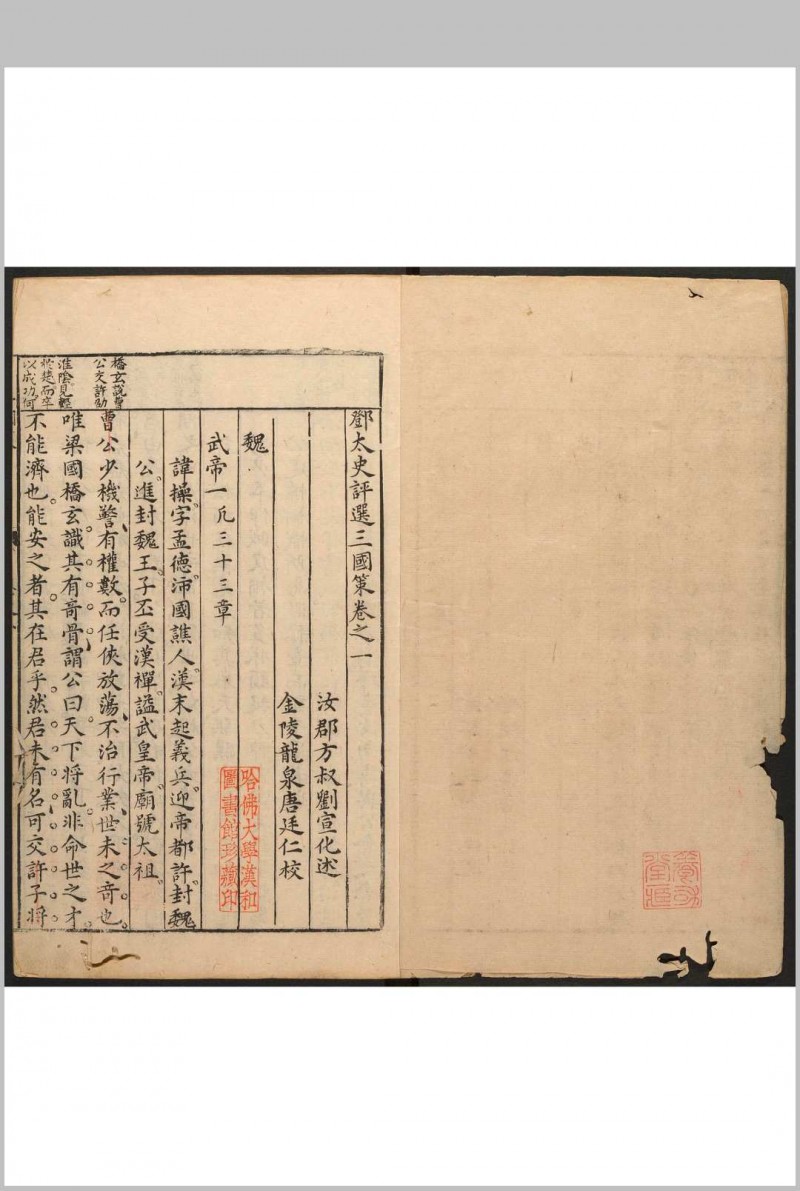 鄧太史評選三國策卷之一
汝郡方叔劉宣化述
金陵龍泉唐廷仁校
魏
武帝一凡三十三章
諱操。字孟德。沛國譙人。漢末起義兵。迎帝都許。封魏
公。進封魏王。子丕受漢禪。謚武皇帝。廟號太祖。
曹公少機警。有權數。而任俠放蕩。不治行業。世未之奇也。
唯梁國橋玄識其有奇骨。謂公曰。天下將亂。非命世之才。
不能濟也。能安之者。其在君乎。然君未有名。可交許子將
橋玄說曹
公交許劭
淮陰見輕
於楚而卒
以成功何
哈佛大學漢和
圖書館珍藏印